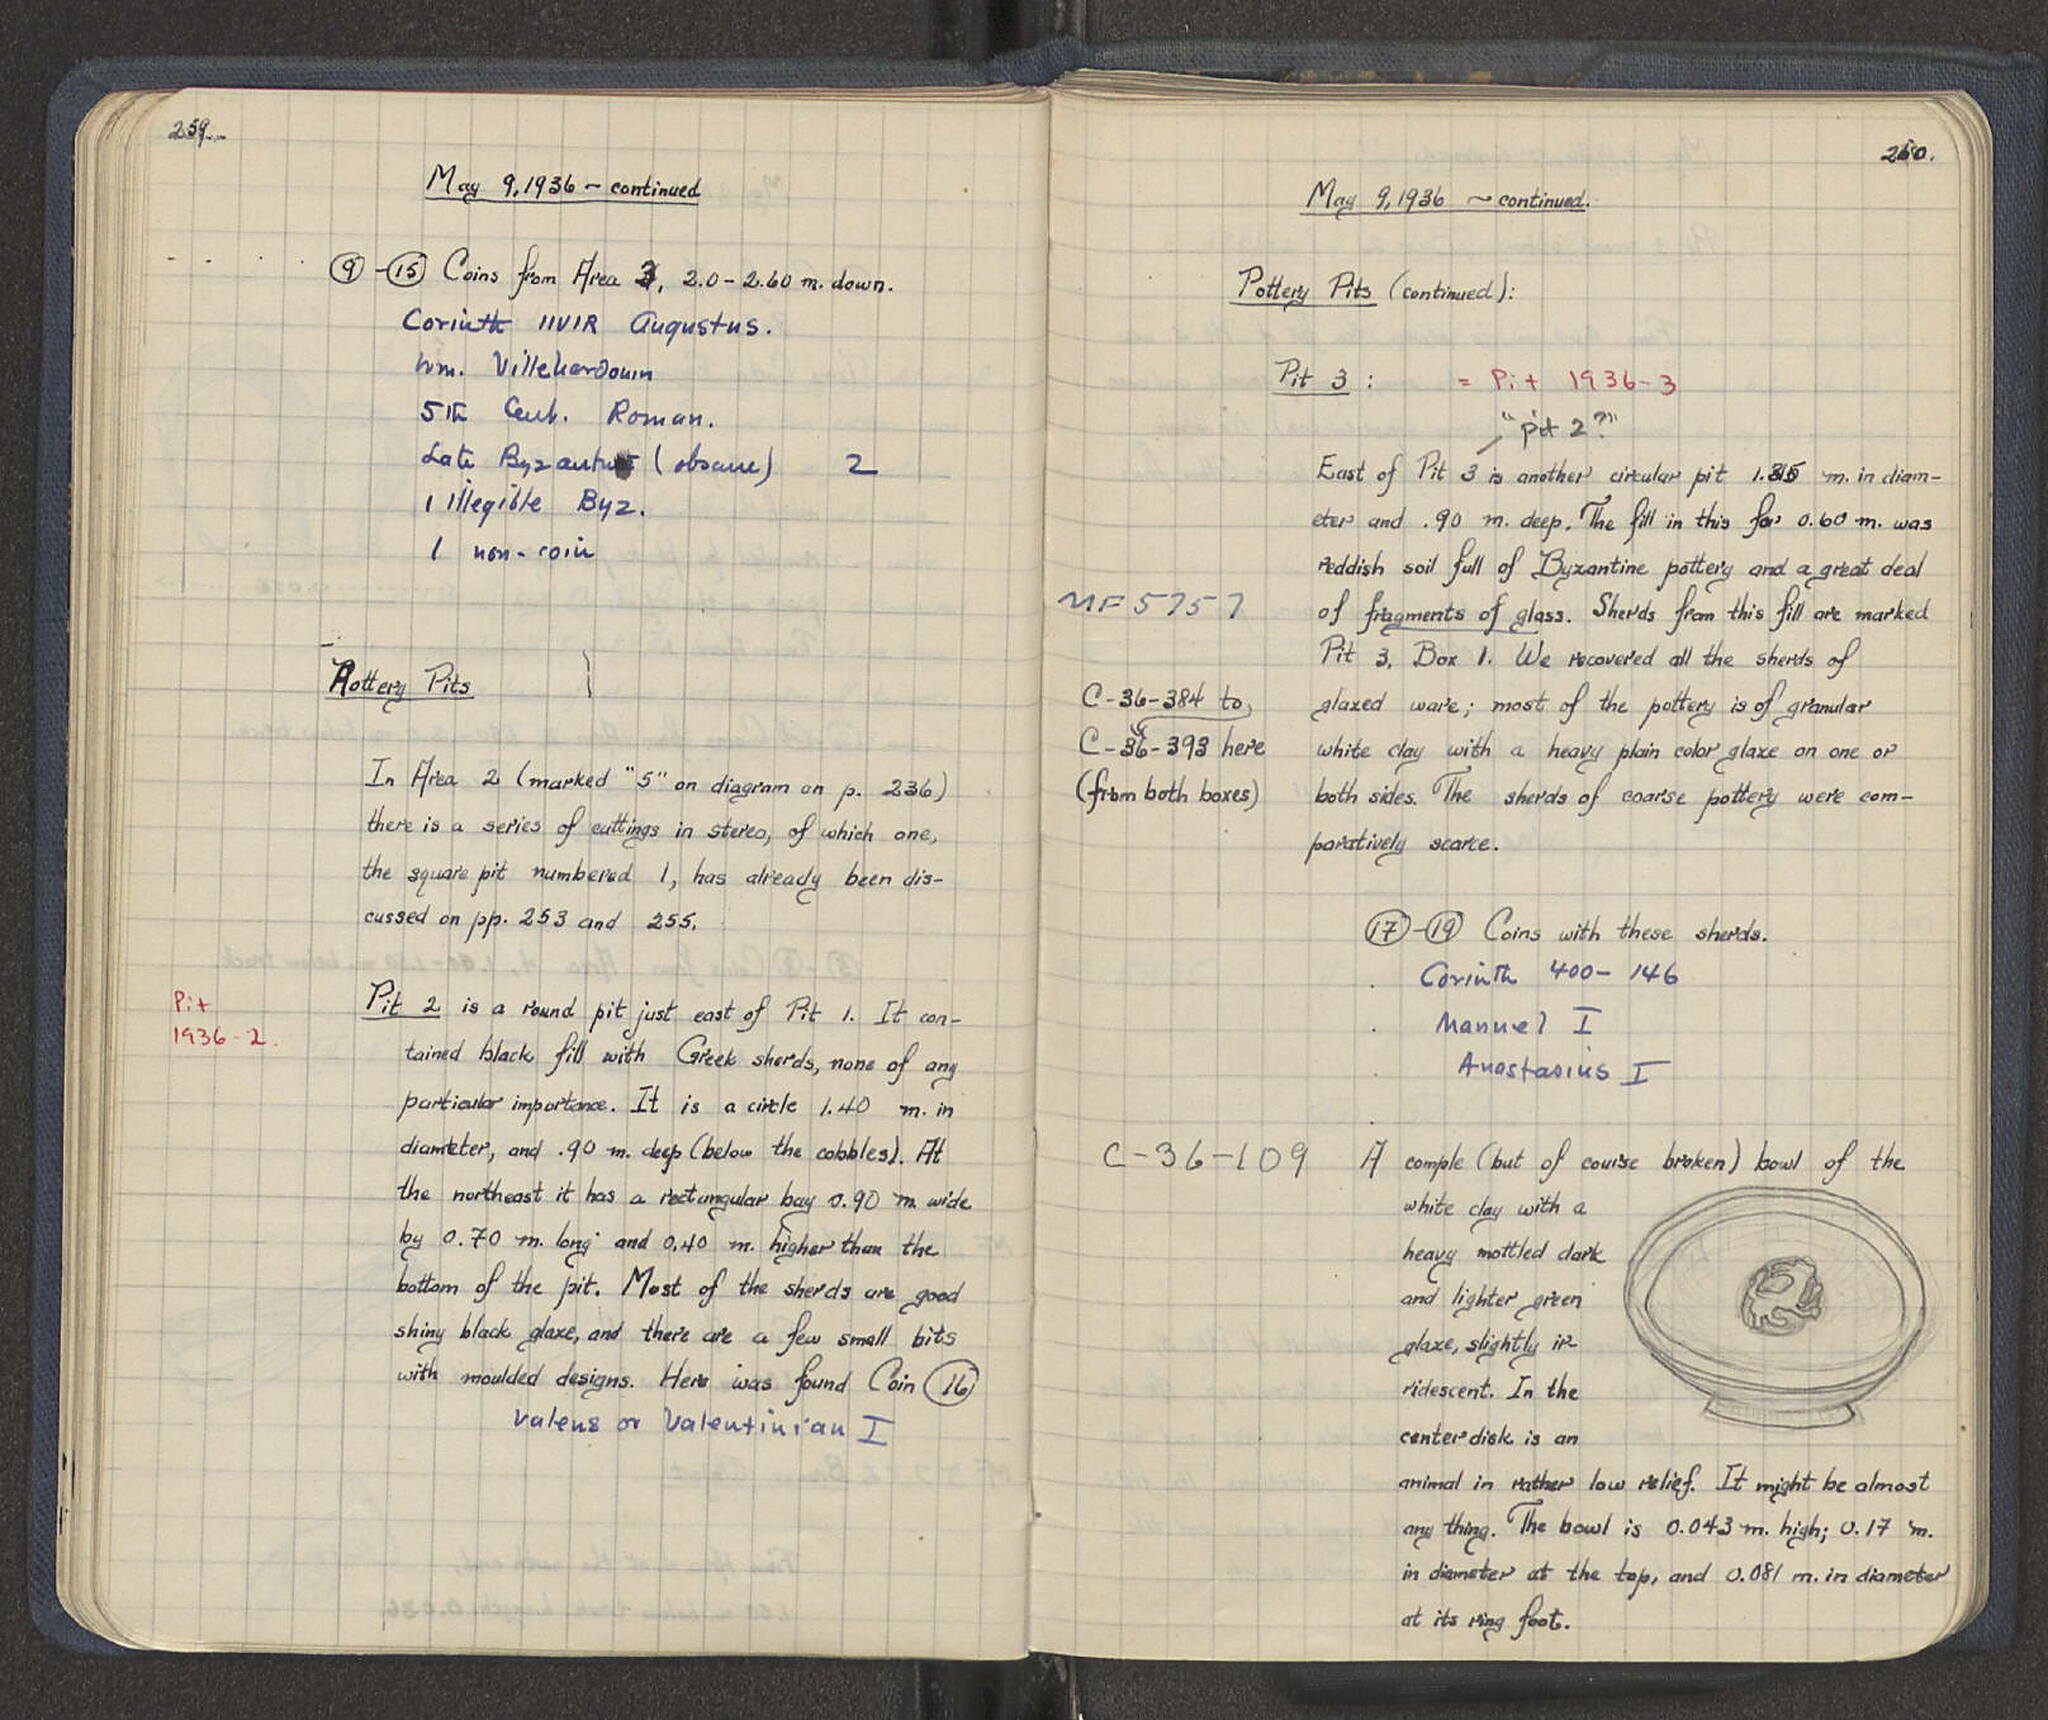 259.
May 9, 1936 ~ continued
9 - 15 Coins from Area 3, 2.0 - 2.60 m. down.
Corinth IIVIR Augustus.
Wm. Villehardouin
5th Cent. Roman.
Late Byzantine (obscure) 2
1 illegible Byz.
1 non-coin
Pottery Pits
In Area 2 (marked "5" on diagram on p. 236)
there is a series of cuttings in stereo, of which one,
the square pit numbered 1, has already been dis-
cussed on pp. 253 and 255.
Pit
1936-2.
Pit 2 is a round pit just east of Pit 1. It con-
tained black fill with Greek sherds, none of any
particular importance. It is a circle 1.40 m. in
diameter, and .90 m. deep (below the cobbles). At
the northeast it has a rectangular bay 0.90 m. wide
by 0.70 m. long and 0.40 m. higher than the
bottom of the pit. Most of the sherds are good
shiny black glaze, and there are a few small bits
with moulded designs. Here was found Coin 16
Valens or Valentinian I
260.
May 9, 1936 ~ continued.
Pottery Pits (continued):
Pit 3 : = Pit 1936-3
"pit 2?"
East of Pit 3 is another circular pit m. in diam-
eter and .90 m. deep. The fill in this for 0.60 m. was
reddish soil full of Byzantine pottery and a great deal
of fragments of glass. Sherds from this fill are marked
MF 5757
Pit 3, Box 1. We recovered all the sherds of
glazed ware; most of the pottery is of granular
white clay with a heavy plain color glaze on one or
both sides. The sherds of coarse pottery were com-
paratively scarce.
C-36-384 to
C-36-393 here
(from both boxes)
17 - 19 Coins with these sherds.
Corinth 400-146
Manuel I
Anastasius I
C-36-109
A comple (but of course broken) bowl of the
white clay with a
heavy mottled dark
and lighter green
glaze, slightly ir-
ridescent. In the
center disk is an
animal in rather low relief. It might be almost
any thing. The bowl is 0.043 m. high; 0.17 m.
in diameter at the top, and 0.081 m. in diameter
at its ring foot.